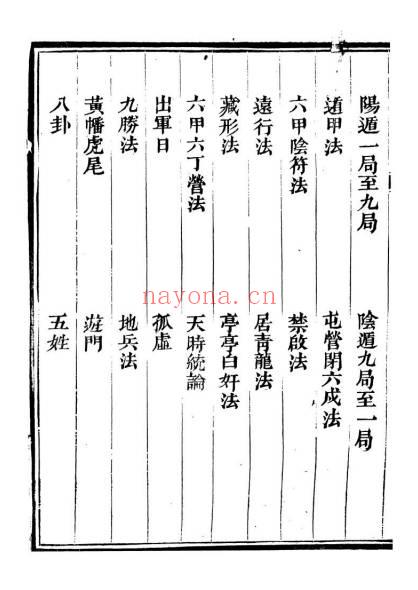 陽遁一局至九局 陰遁九局至一局
遁甲法 屯營閉六戍法
六甲陰符法 禁敔法
遠行法 居青龍法
藏形法 亭亭白奸法
六甲六丁營法 天時統論
出軍日 孤虛
九勝法 地兵法
黃幡虎尾 遊門
八卦 五姓
nayona.cn